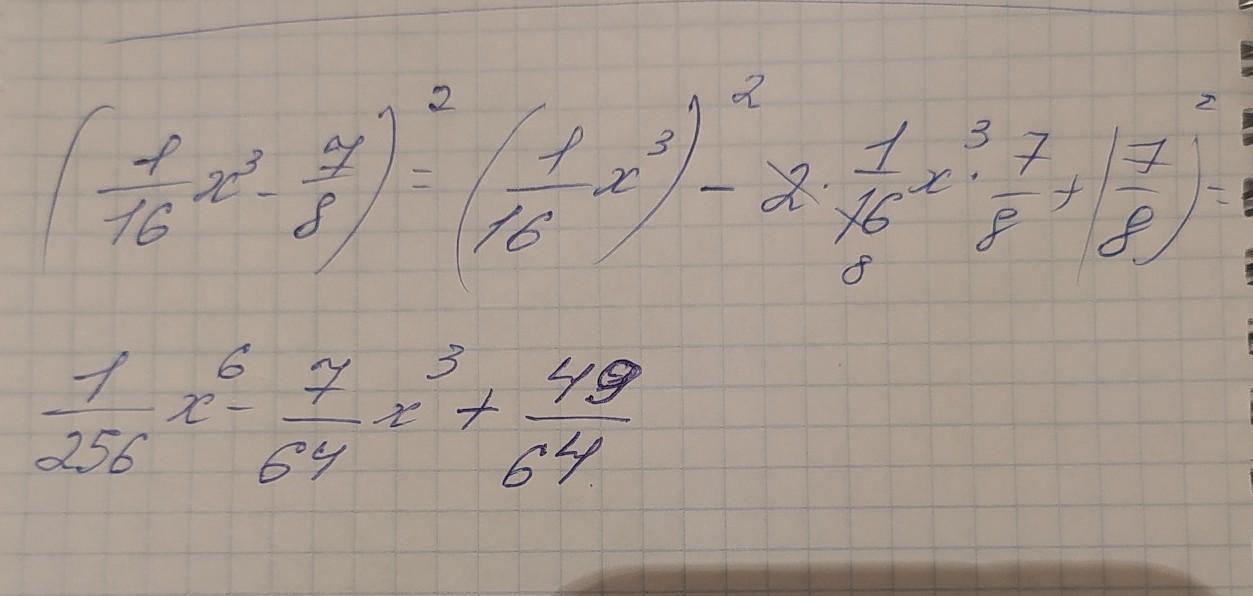 (1/16 x³ - 7/8)² = (1/16 x³)² - 2 · 1/16 x³ · 7/8 + (7/8)² =
8
1/256 x⁶ - 7/64 x³ + 49/64